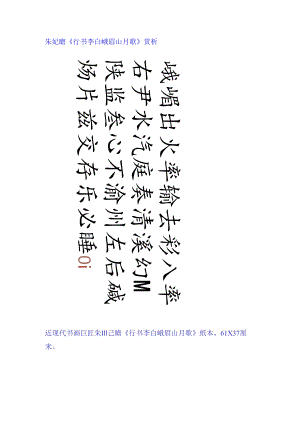 朱妃瞻《行书李白峨眉山月歌》赏析
峨嵋出火率输去彩八率
右尹水汽庭奏清溪幻M
陕监叁心不渝州左后碱
炀片兹交存乐必睡Oi
近现代书画巨匠朱Ill己瞻《行书李白峨眉山月歌》纸本。61X37厘
米。